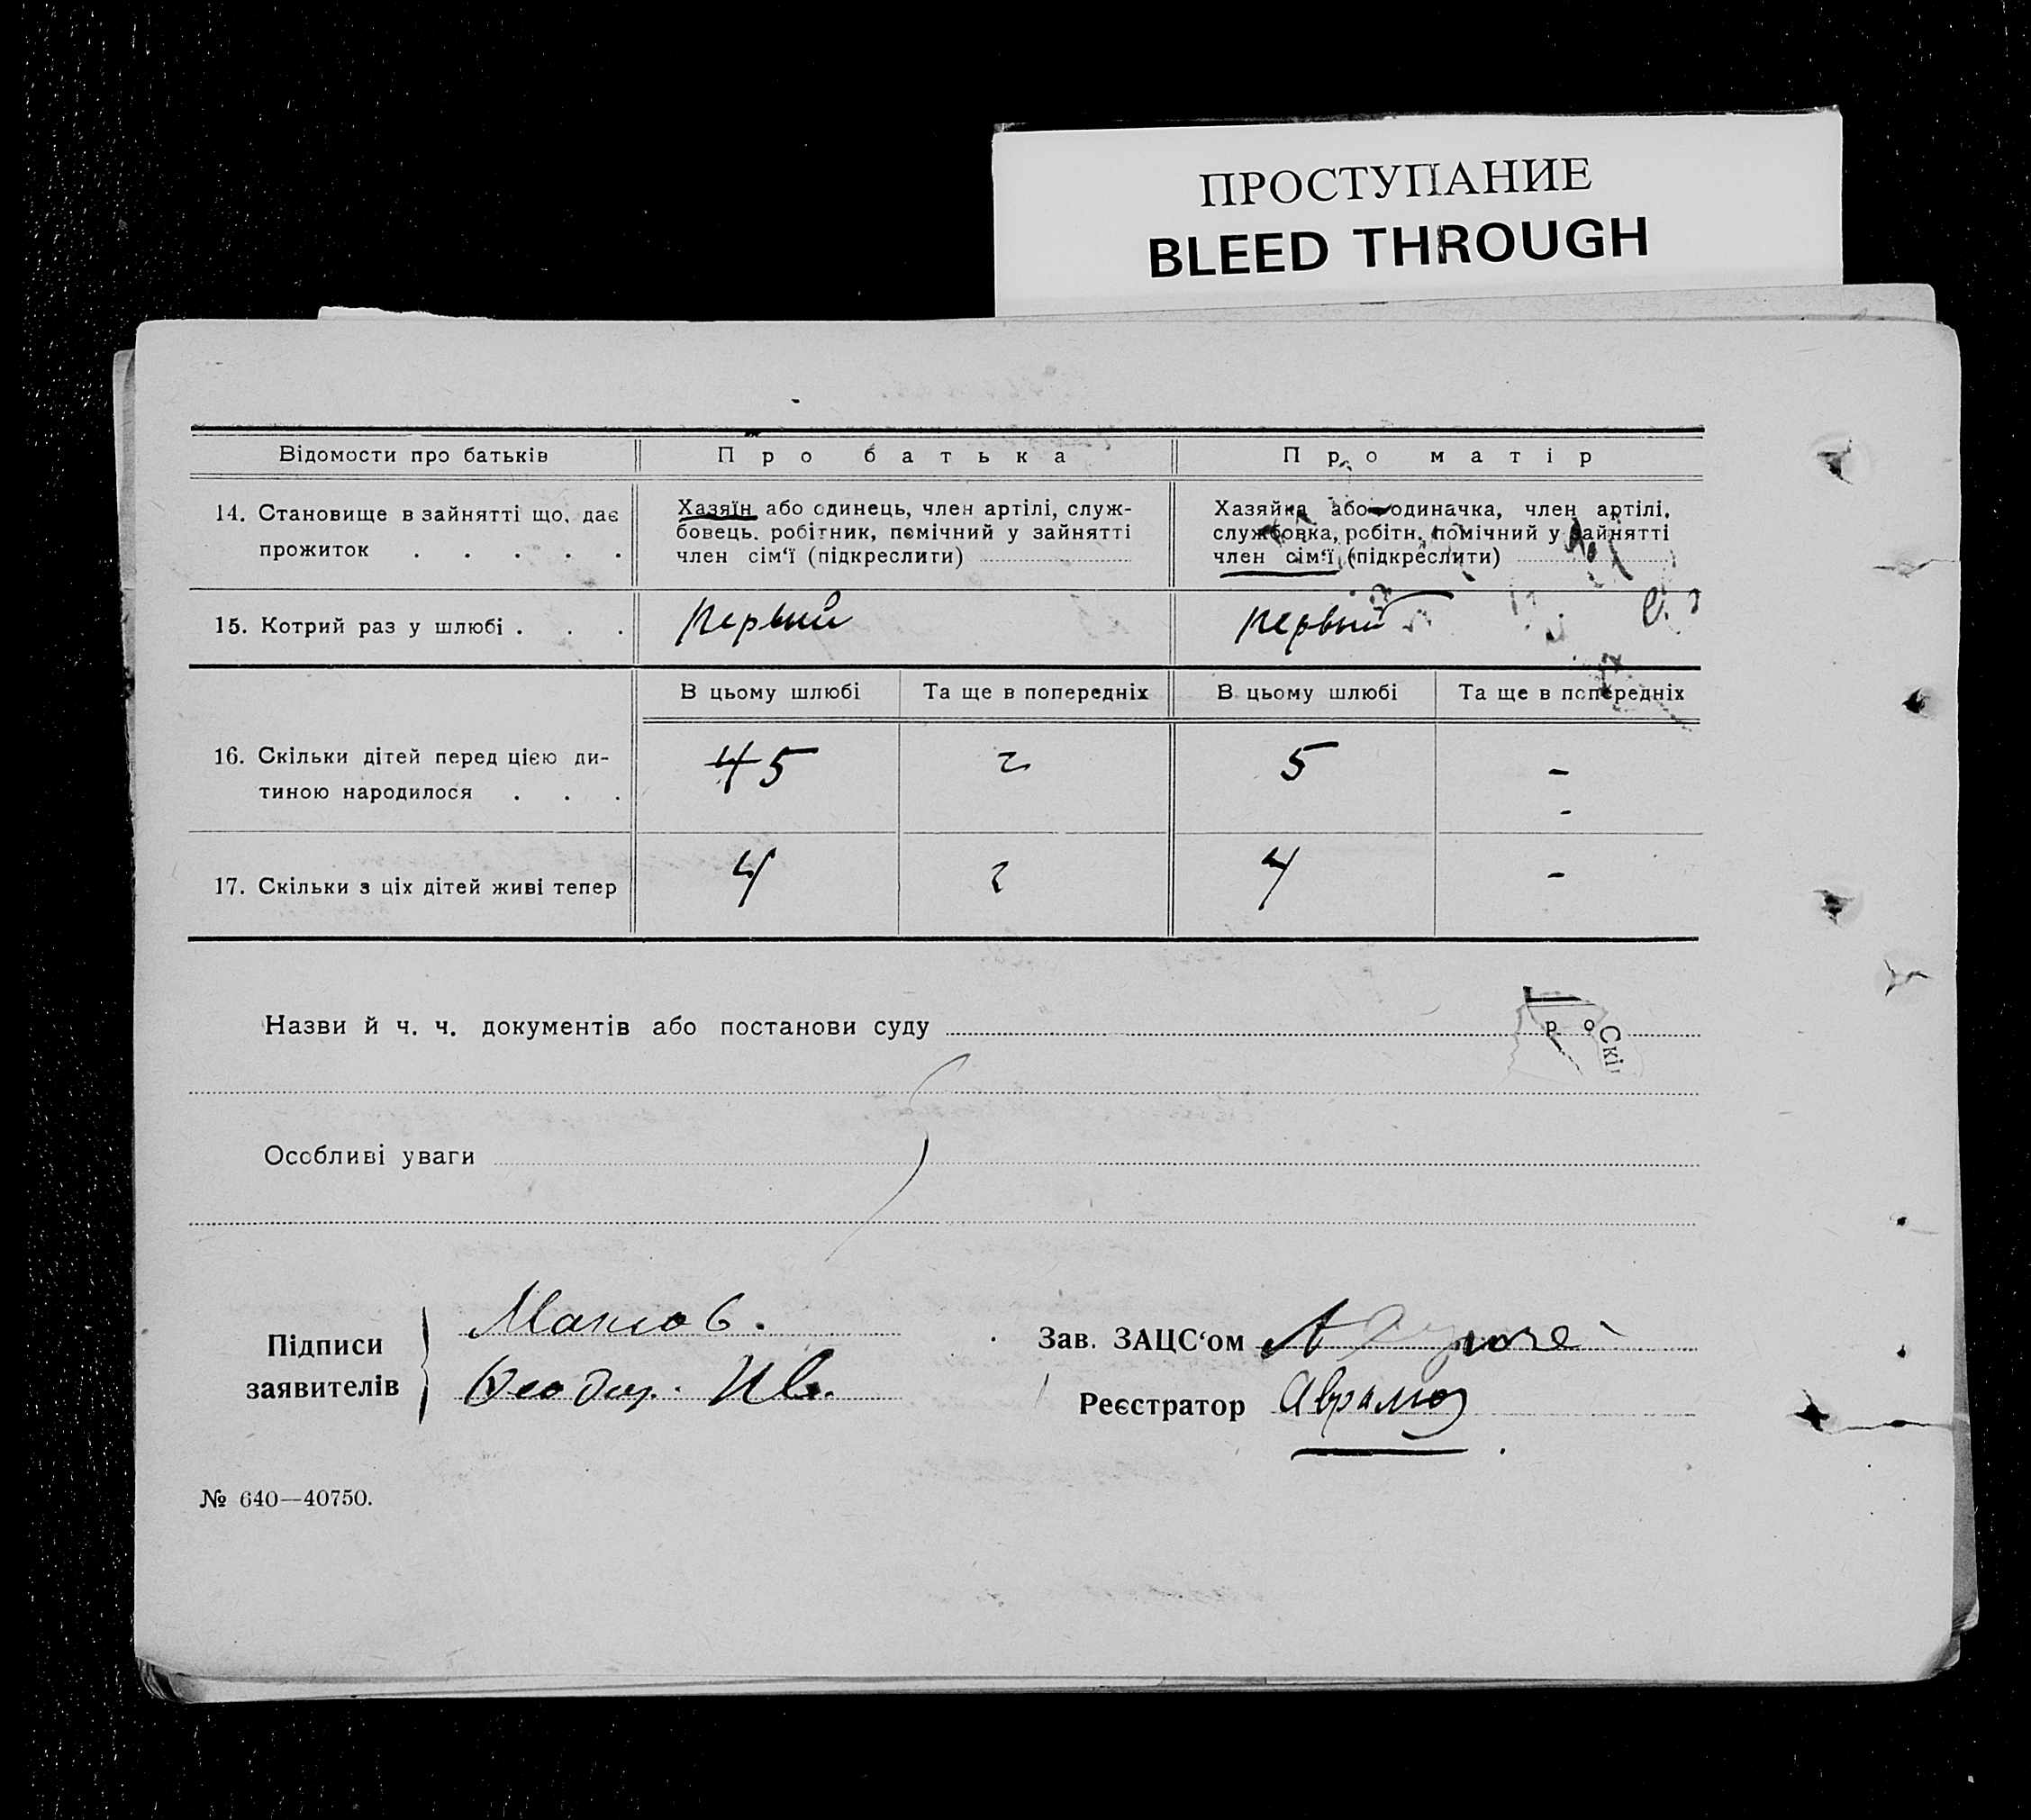 ПРОСТУПАНИЕ
BLEED THROUGH
Відомости про батьків
Про батька
Про матір
14. Становище в зайнятті що, дає
прожиток . . . . .
Хазяїн або одинець, член артілі, служ-
бовець. робітник, помічний у зайнятті
член сім‘ї (підкреслити)
Хазяйка або одиначка, член артілі.
службовка, робітн. помічний у зайнятті
член сім‘ї (підкреслити)
15. Котрий раз у шлюбі . . .
первый
первый
В цьому шлюбі
Та ще в попередніх
В цьому шлюбі
Та ще в попередніх
16. Скільки дітей перед цією ди-
тиною народилося . . .
4 5
2
5
-
17. Скільки з ціх дітей живі тепер
4
2
4
-
Назви й ч. ч. документів або постанови суду
р о Скі
Особливі уваги
Підписи
заявителів
Феодир. Ив.
Зав. ЗАЦС‘ом
Реєстратор
№ 640—40750.